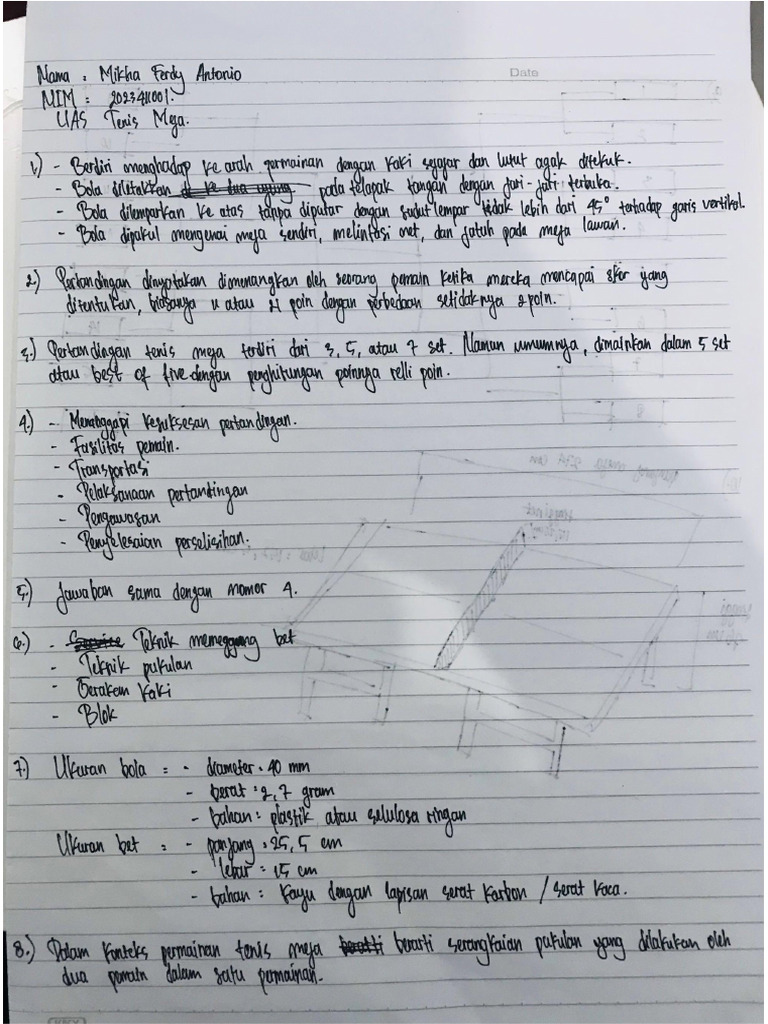 Date
Nama : Mikha Ferdy Antonio
NIM : 2023411001.
UAS Tenis Meja.
1.) - Berdiri menghadap ke arah permainan dengan kaki sejajar dan lutut agak ditekuk.
- Bola diletakkan pada telapak tangan dengan jari-jari terbuka.
- Bola dilemparkan ke atas tanpa diputar dengan sudut lempar tidak lebih dari 45° terhadap garis vertikal.
- Bola dipukul mengenai meja sendiri, melintasi net, dan jatuh pada meja lawan.
2.) Pertandingan dinyatakan dimenangkan oleh seorang pemain ketika mereka mencapai skor yang
ditentukan, biasanya 11 atau 21 poin dengan perbedaan setidaknya 2 poin.
3.) Pertandingan tenis meja terdiri dari 3, 5, atau 7 set. Namun umumnya, dimainkan dalam 5 set
atau best of five dengan penghitungan poinnya relli poin.
4.) - Menanggapi kesuksesan pertandingan.
- Fasilitas pemain.
- Transportasi
- Pelaksanaan pertandingan
- Pengawasan
- Penyelesaian perselisihan.
5.) Jawaban sama dengan nomor 4.
6.) - Teknik memeggang bet
- Teknik pukulan
- Gerakan kaki
- Blok
7.) Ukuran bola = - diameter = 40 mm
- berat = 2,7 gram
- bahan : plastik atau selulosa ringan
Ukuran bet = - panjang = 25,5 cm
- lebar = 15 cm
- bahan : kayu dengan lapisan serat karbon / serat kaca.
8.) Dalam konteks permainan tenis meja berarti serangkaian pukulan yang dilakukan oleh
dua pemain dalam satu permainan.